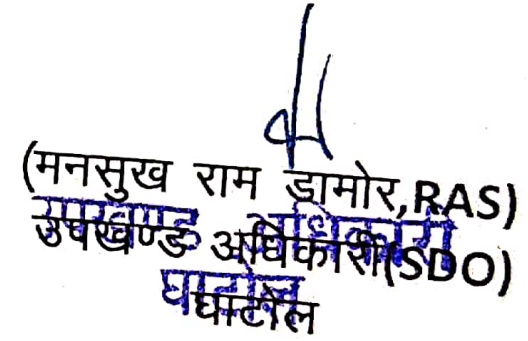 (मनसुख राम डामोर,RAS)
उपखण्ड अधिकारी(SDO)
घाटोल
उपखण्ड अधिकारी
घाटोल